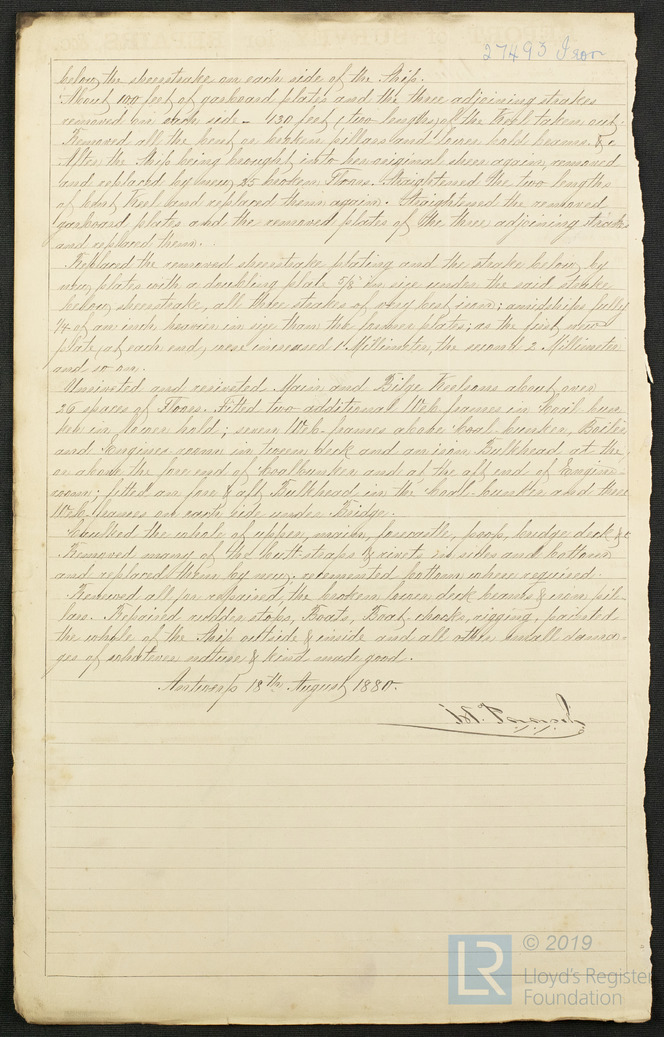 27493 Iron
below the sheerstrake on each side of the Ship.
About 100 feet of garboard plates and the three adjoining strakes
removed on each side – 130 feet (two lengths) of the keel taken out.
Removed all the bent or broken pillars and lower hold beams &c
After the Ship being brought into her original sheer again, removed
and replaced by new 25 broken Floors. Straightened the two lengths
of bent Keel and replaced them again. Straightened the removed
garboard plates and the removed plates of the three adjoining strakes
and replaced them.
Replaced the removed sheerstrake plating and the strake below, by
new plates with a doubling plate 5/8 in size under the said strake
below sheerstrake, all three strakes of very best iron; amidships fully
1/4 of an inch heavier in size than the former plates; as the first new
plate, at each end, were increased 1 Millimeter, the second 2 Millimeter
and so on.
Unriveted and reriveted Main and Bilge Keelsons about over
26 spaces of Floors. Fitted two additional Web frames in Coal bun
ker in lower hold; seven Web frames above Coal bunker, Boiler
and Engine room in tween deck and an iron Bulkhead at the
or about the fore end of Coalbunker and at the aft end of Engine-
room; fitted an fore & aft Bulkhead in the Coal bunker and three
Web frames on each side under Bridge.
Caulked the whole of upper, main, forecastle, poop, bridge deck &c
Removed many of the butt straps & rivets in sides and bottom
and replaced them by new; recemented bottom where required.
Renewed all or repaired the broken lower deck beams & iron pil-
lars. Repaired rudder stops, Boats, Boat chocks, rigging, painted
the whole of the Ship outside & inside and all other small dama-
ges of whatever nature & kind made good.
Antwerp 18th August 1880.
© 2019
Lloyd's Register
Foundation
LR